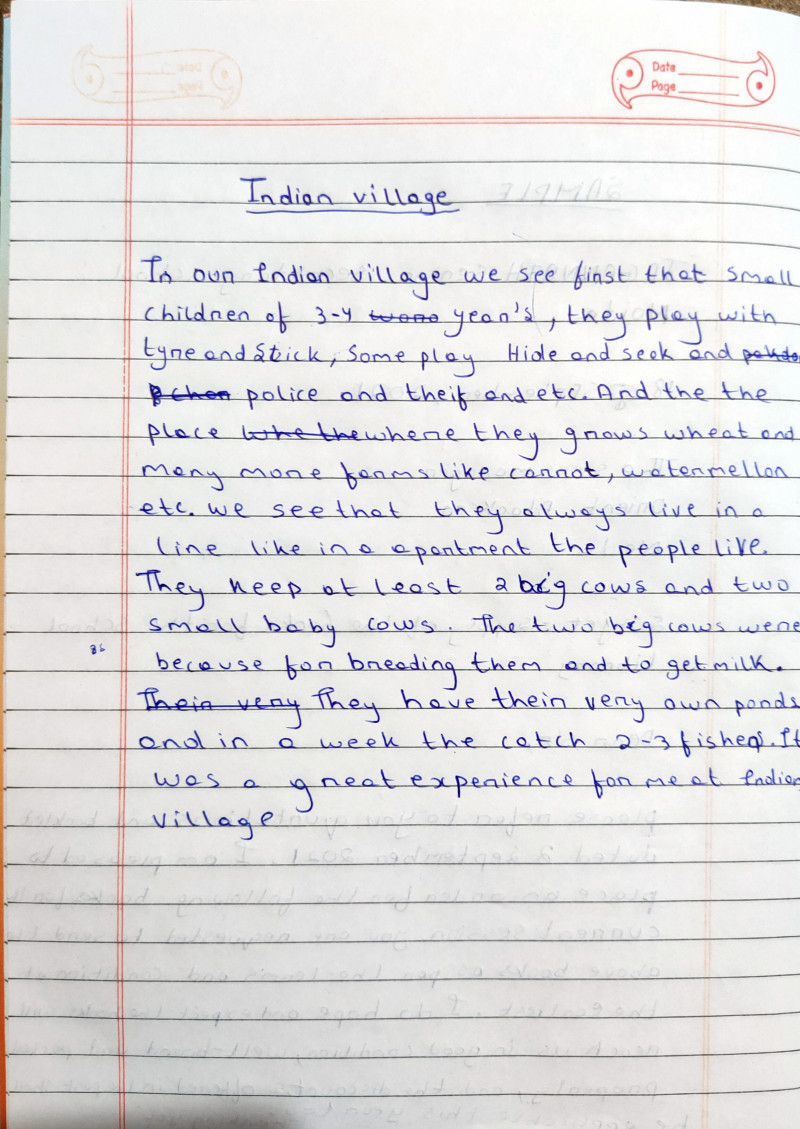 Date
Page
Indian village
In our Indian village we see first that small
children of 3-4 year's, they play with
tyre and stick, some play Hide and seek and
police and theif and etc. And the the
place where they grows wheat and
many more farms like carrot, watermellon
etc. we see that they always live in a
line like in a apartment the people live.
They keep at least 2 big cows and two
small baby cows. The two big cows were
because for breeding them and to get milk.
Their very They have their very own ponds
and in a week the catch 2-3 fishes. It
was a great experience for me at Indian
village